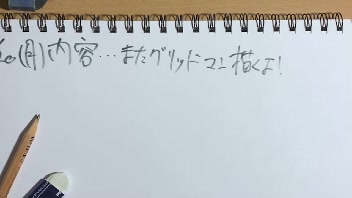 (月)内容…またグリッドマン描くよ!